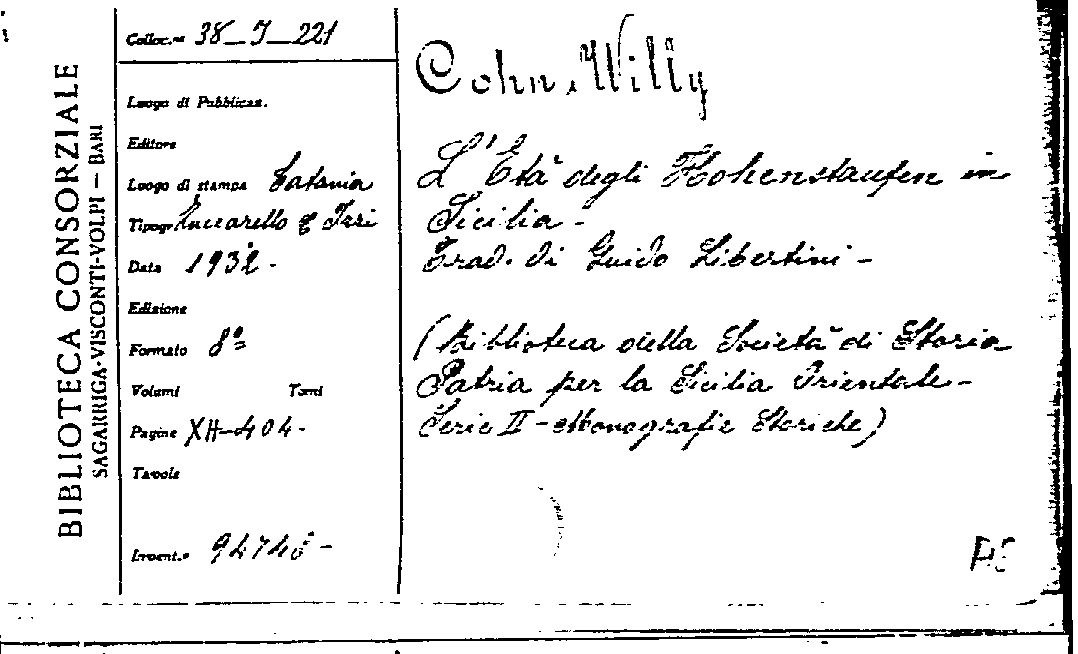 BIBLIOTECA CONSORZIALE
SAGARRIGA-VISCONTI-VOLPI — BARI
Colloc.ne 38_J_221
Luogo di Pubblicaz.
Editore
Luogo di stampa Catania
Tipogr. Zuccarello & Izzi
Data 1932 -
Edizione
Formato 8º
Volumi Tomi
Pagine XII-404-
Tavole
Invent.º
Cohn, Willy
L'Età degli Hohenstaufen in
Sicilia -
Trad. di Guido Libertini -
(Biblioteca della Società di Storia
Patria per la Sicilia Orientale -
Serie II - Monografie Storiche)